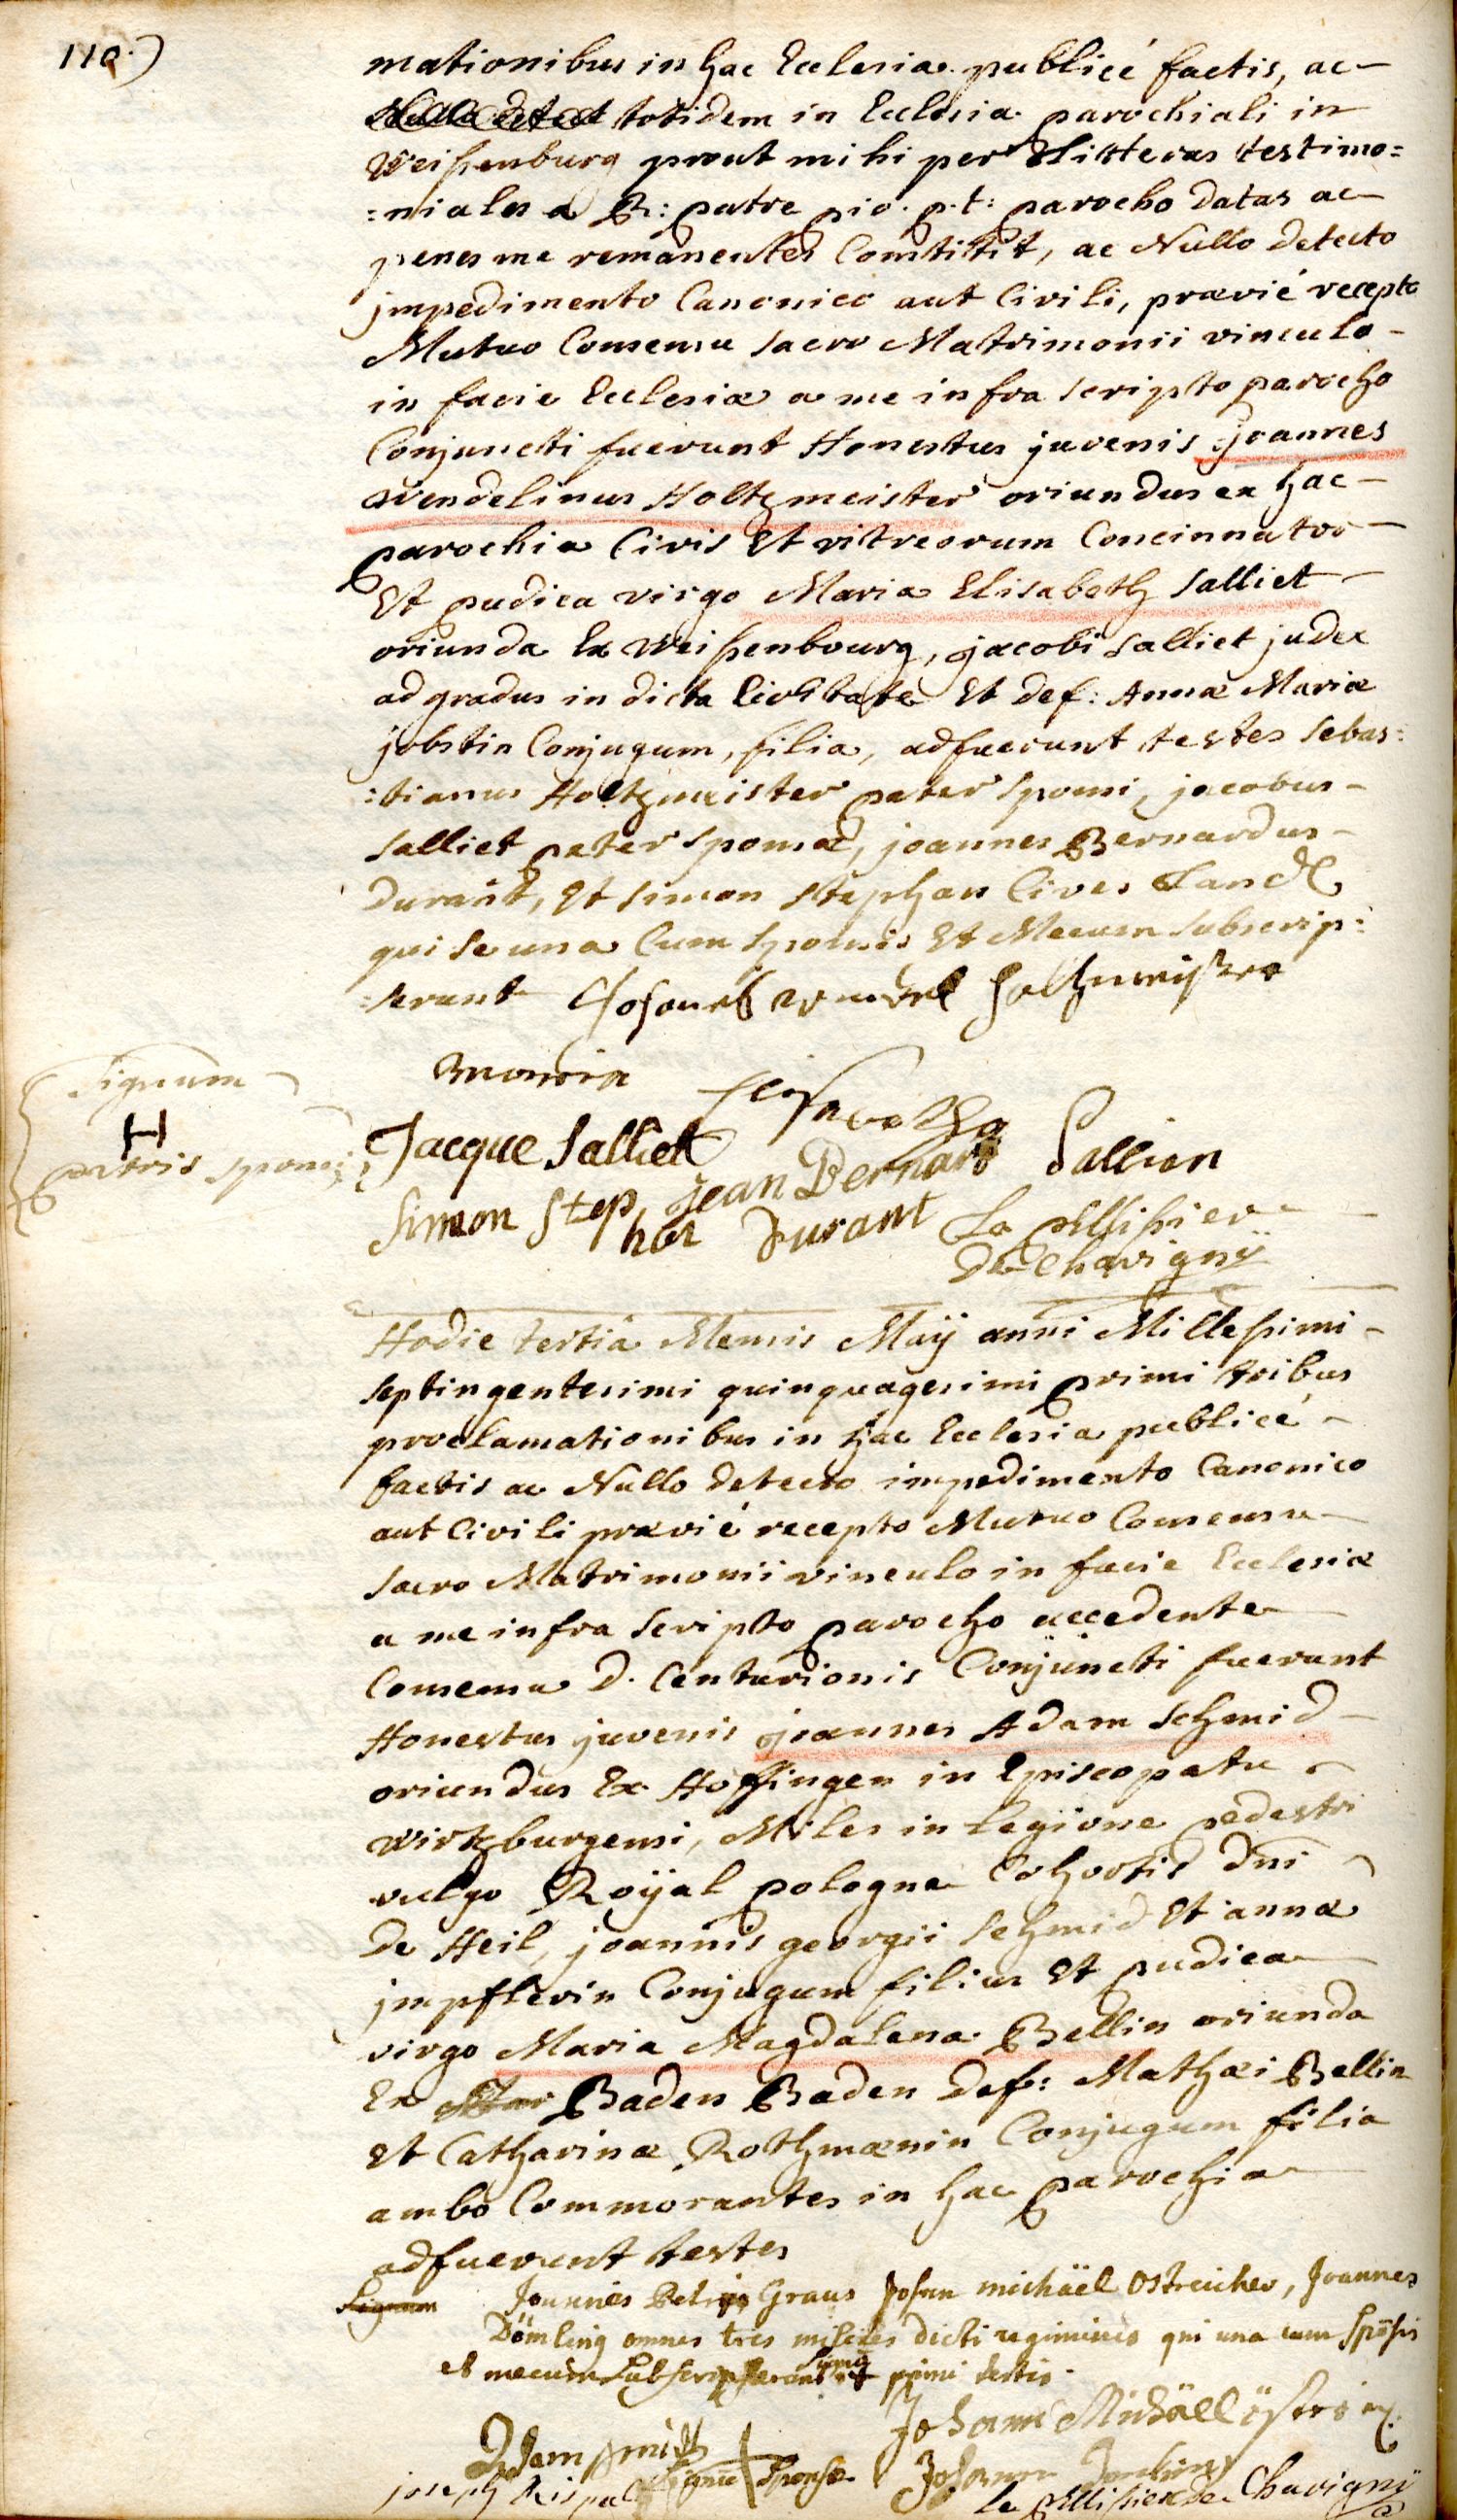 110.)
mationibus in hac Ecclesia publicé factis, ac
totidem in Ecclesia parochiali in
Weißenburg prout mihi per litteras testimo=
=niales a R: patre pio. p.t: parocho datas ac
penes me remanentes Constitit, ac Nullo detecto
jmpedimento Canonico aut Civili, prævié recepto
Mutuo Consensu sacro Matrimonii vinculo
in facie Ecclesiæ a me infra scripto parocho
Conjuncti fuerunt Honestus juvenis joannes
wendelinus Holtzmeister oriundus ex hac
parochia Civis Et vitreorum Concinnator
Et pudica virgo Maria Elisabeth Salliet
oriunda Ex Weißenbourg, jacobi Salliet judex
ad gradus in dicta Civitate Et def: Annæ Mariæ
jobstin Conjugum, filia, adfuerunt testes Sebas=
:tianus Holtzmeister pater sponsi, jacobus
Salliet pater sponsæ, joannes Bernardus
Durant, Et simon Stephan Cives
qui se una Cum sponsis Et Mecum subscrip:
=serunt Johanes wendel Holtzmeister
Signum
H
patris sponsi
maria Elisabetha Sallien
Jacque Salliet
Jean Bernard Durant
Simon Stephan
Le pellissier
De Chavignÿ
Hodie tertiâ Mensis Maÿ anni Millesimi
septingentesimi quinquagesimi primi tribus
proclamationibus in hac Ecclesia publicé
factis ac Nullo detecto impedimento Canonico
aut Civili prævié recepto Mutuo Consensu
sacro Matrimonii vinculo in facie Ecclesiæ
a me infra scripto parocho accedente
Consensu D. Centurionis Conjuncti fuerunt
Honestus juvenis joannes Adam Schmid
oriundus Ex Hoffingen in Episcopatu
wirtzburgensi, Miles in legione pedestri
vulgo Roÿal pologne Cohortis dni
de Heil, joannis georgii Schmid Et annæ
jmpflerin Conjugum filius Et pudica
virgo Maria Magdalena Bellin oriunda
Ex Baden Baden def: Mathæi Bellin
Et Catharinæ Rothmænin Conjugum filia
ambo Commorantes in hac parochia
adfuerunt testes
Signum Joannes Petrus Graus Johan michäel Ostreicher, Joannes
Dömling omnes tres milites dicti regiminis qui una cum Sponsis
et mecum Subscripserunt primi testis.
Johann Michäel
Adam Signu Sponsæ Johann
joseph le pellissier de Chavignÿ